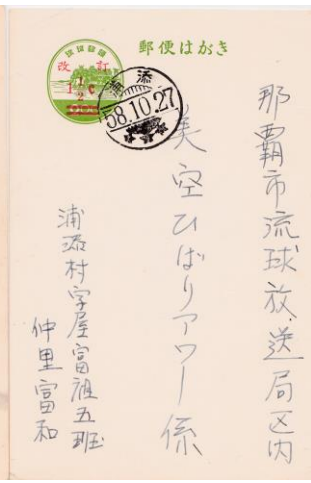 郵便はがき
琉球郵便
改訂
1½¢
浦添
58.10.27
那覇市流球放送局区内
美空ひばりアワー係
浦添村字屋富祖五班
仲里富和